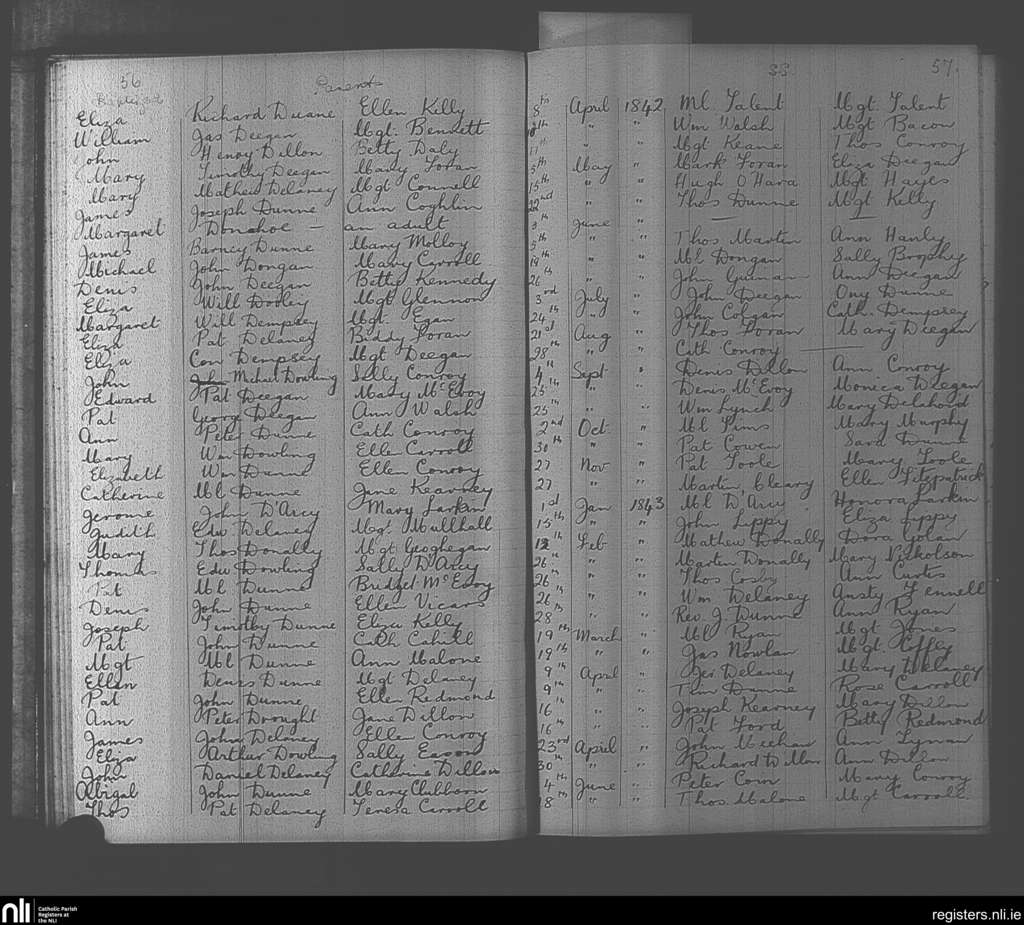 56 57.
Baptized Parents SS
Eliza Richard Duane Ellen Kelly 8th April 1842 Ml. Talent Mgt. Talent
William Jas Deegan Mgt. Bennett " " Wm Walsh Mgt Bacon
John Henry Dillon Betty Daly 17th " " Mgt Keane Thos Conroy
Mary Timothy Deegan Mary Foran 5th May " Mark Foran Eliza Deegan
Mary Mathew Delaney Mgt Connell 15th " " Hugh O'Hara Mgt Hayes
James Joseph Dunne Ann Coghlin 22nd " " Thos Dunne Mgt Kelly
Margaret Donohoe — an adult 3th June " — —
James Barney Dunne Mary Molloy 5th " " Thos Martin Ann Hanly
Michael John Dongan Mary Carroll 19th " " Ml Dongan Sally Brophy
Denis John Deegan Betty Kennedy 26 " " John Guinan Ann Deegan
Eliza Will Dooley Mgt Glennon 3rd July " John Deegan Ony Dunne
Margaret Will Dempsey Mgt. Egan 24th " " John Colgan Cath. Dempsey
Eliza Pat Delaney Biddy Foran 21st Aug " Thos Foran Mary Deegan
Eliza Con Dempsey Mgt Deegan 28th " " Cath Conroy —
John John Michael Dowling Sally Conroy 4th Sept " Denis Dillon Ann Conroy
Edward Pat Deegan Mary McEvoy 25th " " Denis McEvoy Monica Deegan
Pat George Deegan Ann Walsh 25th " " Wm Lynch Mary Delahord
Ann Peter Dunne Cath Conroy 2nd Oct " Ml Sims Mary Murphy
Mary Wm Dowling Ellen Carroll 30th " " Pat Cowen Sara Dunne
Elizabeth Wm Dunne Ellen Conroy 27 Nov " Pat Toole Mary Toole
Catherine Ml Dunne Jane Kearney 27 " " Martin Cleary Ellen Fitzpatrick
Jerome John D'Arcy Mary Larkin 1st Jan 1843 Ml D'Arcy Honora Larkin
Judith Edw Delaney Mgt Mullhall 15th " " John Lippy Eliza Lippy
Mary Thos Donally Mgt Geoghegan 12th Feb " Mathew Donally Dora Golan
Thomas Edw Dowling Sally D'Arcy 26th " " Marten Donally Mary Nickolson
Pat Ml Dunne Bridget McEvoy 26th " " Thos Cosby Ann Curtis
Denis John Dunne Ellen Vicars 26 " " Wm Delaney Austy Fennell
Joseph Timothy Dunne Eliza Kelly 28th " " Rev. J. Dunne Ann Ryan
Pat John Dunne Cath Cahill 19th March " Ml Ryan Mgt Jones
Mgt Ml Dunne Ann Malone 19th " " Jas Nowlan Mgt.
Ellen Denis Dunne Mgt Delaney 9th April " Jer. Delaney Mary Delaney
Pat John Dunne Ellen Redmond 9th " " Tim Dunne Rose Carroll
Ann Peter Drought Jane Dillon 16th " " Joseph Kearney Mary Dillon
James John Delaney Ellen Conroy 16th " " Pat Ford Betty Redmond
Eliza Arthur Dowling Sally Eason 23rd April " John Meehan Ann Lynan
John Daniel Delaney Catherine Dillon 30th " " Richard Dillon Ann Dillon
Abigal John Dunne Mary Clibborn 4th June " Peter Coin Mary Conroy
Thos Pat Delaney Teresa Carroll 18th " " Thos. Malone Mgt Carroll.
nli Catholic Parish
Registers at
the NLI
registers.nli.ie